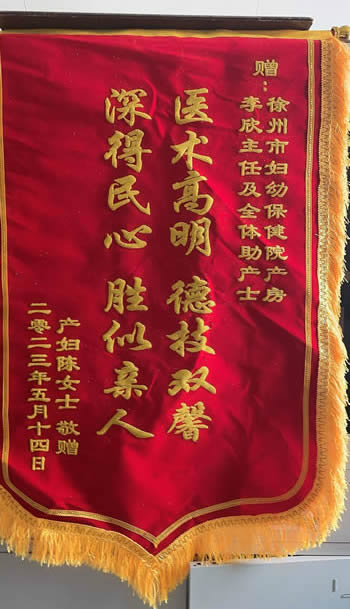 赠:
徐州市妇幼保健院产房
李欣主任及全体助产士
医术高明 德技双馨
深得民心 胜似亲人
产妇陈女士 敬赠
二零二三年五月十四日